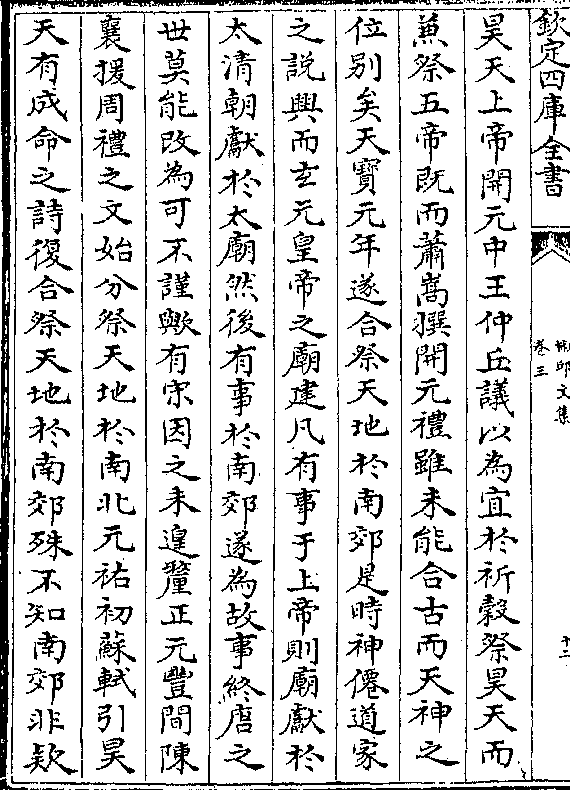 欽定四庫全書
卷三
昊天上帝開元中王仲丘議以為宜於祈穀祭昊天而
兼祭五帝既而蕭嵩撰開元禮雖未能合古而天神之
位別矣天寶元年遂合祭天地於南郊是時神僊道家
之說興而玄元皇帝之廟建凡有事于上帝則廟獻於
太清朝獻於太廟然後有事於南郊遂為故事終唐之
世莫能改為可不謹歟有宋因之未遑釐正元豐間陳
襄援周禮之文始分祭天地於南北元祐初蘇軾引昊
天有成命之詩復合祭天地於南郊殊不知南郊非欵